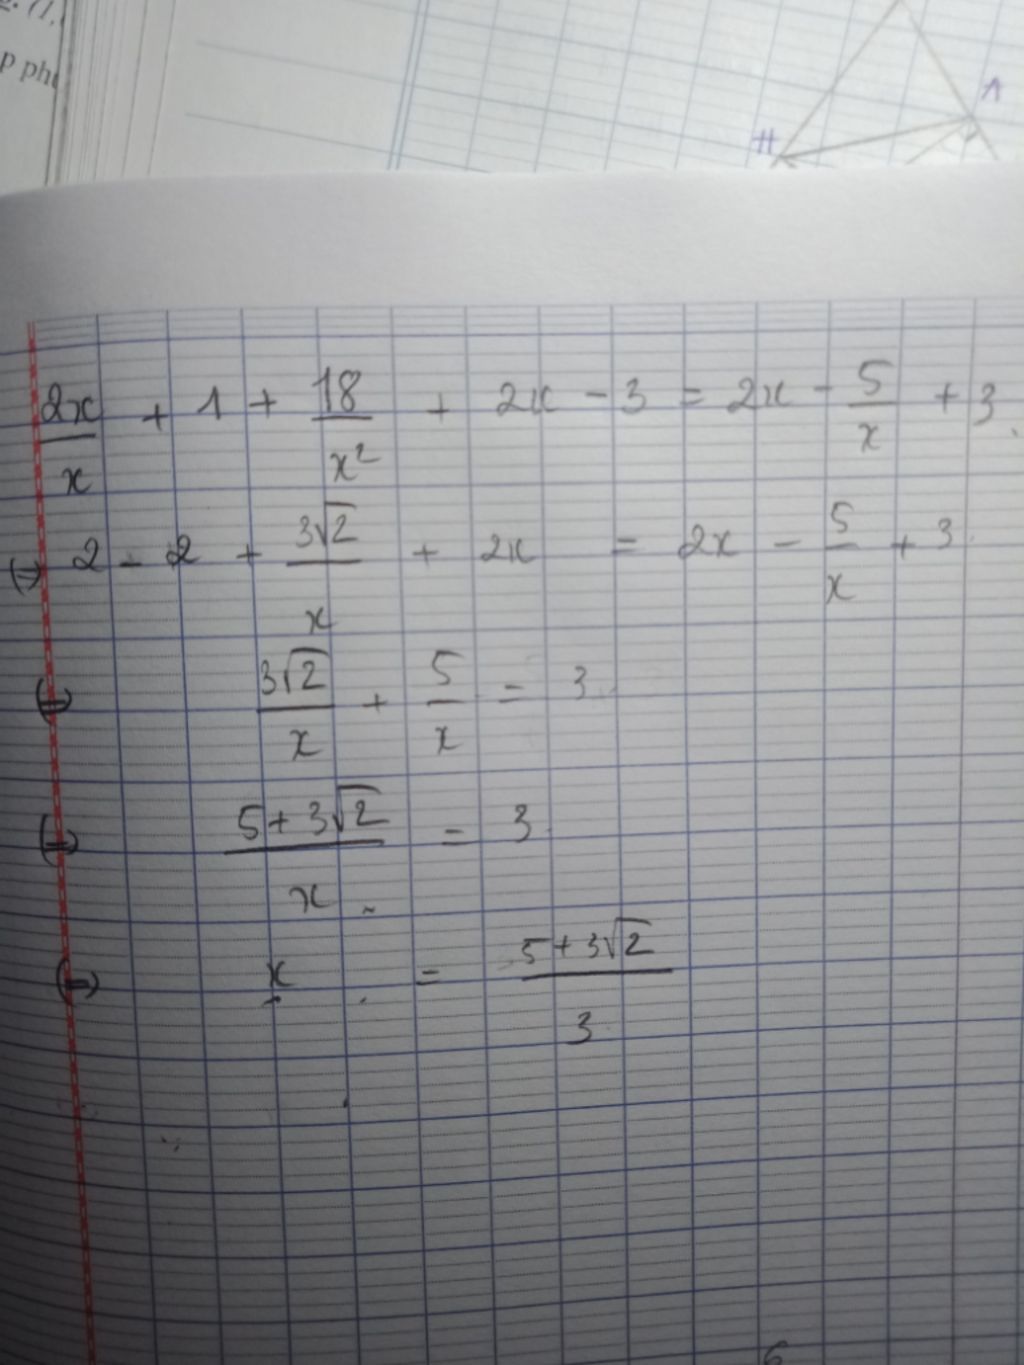 p ph
H
A
2x/x + 1 + 18/x² + 2x - 3 = 2x - 5/x + 3
(=) 2 - 2 + 3√2/x + 2x = 2x - 5/x + 3
(=) 3√2/x + 5/x = 3
(=) 5+3√2/x = 3
(=) x = 5+3√2/3